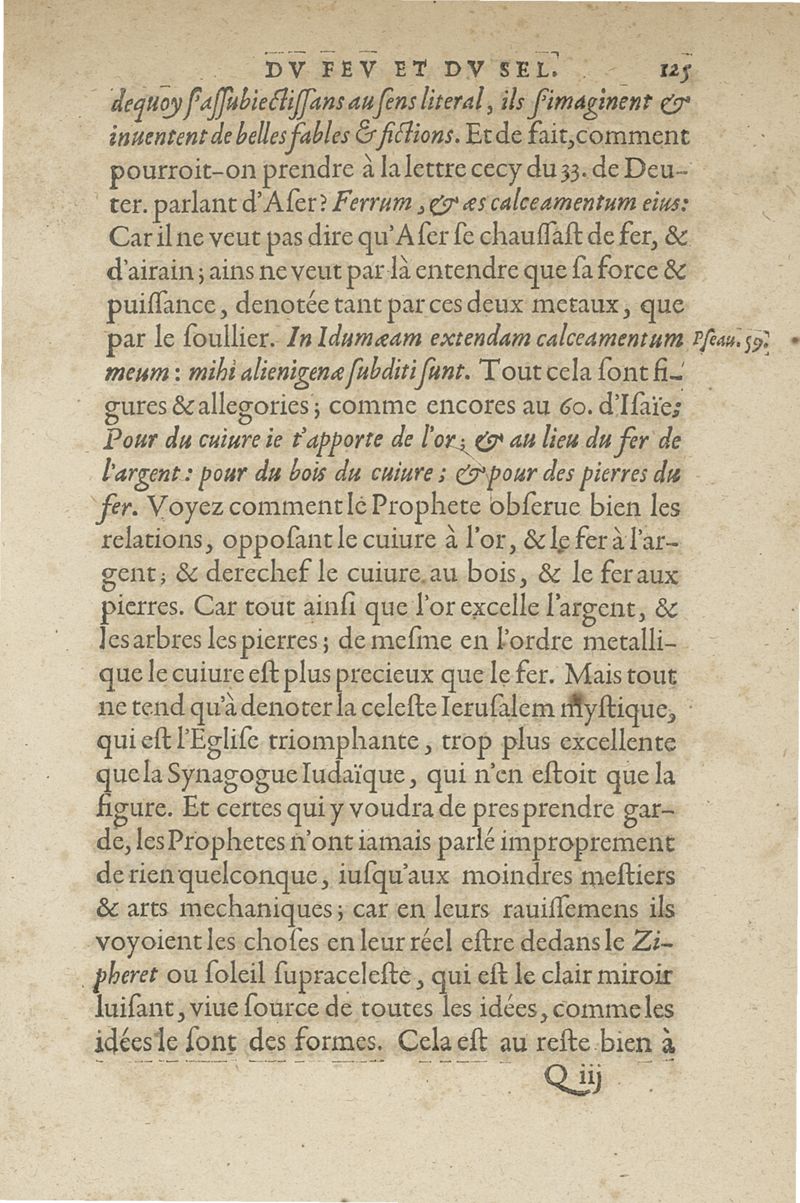 DV FEV ET DV SEL. 125
dequoy ſ'aſſubiectiſſans au ſens literal, ils ſ'imaginent &
inuentent de belles fables & fictions. Et de fait, comment
pourroit-on prendre à la lettre cecy du 33. de Deu-
ter. parlant d'Aſer? Ferrum, & æs calceamentum eius:
Car il ne veut pas dire qu'Aſer ſe chauſſaſt de fer, &
d'airain; ains ne veut par là entendre que ſa force &
puiſſance, denotée tant par ces deux metaux, que
par le ſoullier. In Idumæam extendam calceamentum
Pſeau. 59.
meum: mihi alienigenæ ſubditi ſunt. Tout cela ſont fi-
gures & allegories; comme encores au 60. d'Iſaïe;
Pour du cuiure ie t'apporte de l'or; & au lieu du fer de
l'argent: pour du bois du cuiure; & pour des pierres du
fer. Voyez comment le Prophete obſerue bien les
relations, oppoſant le cuiure à l'or, & le fer à l'ar-
gent; & derechef le cuiure au bois, & le fer aux
pierres. Car tout ainſi que l'or excelle l'argent, &
les arbres les pierres; de meſme en l'ordre metalli-
que le cuiure eſt plus precieux que le fer. Mais tout
ne tend qu'à denoter la celeſte Ieruſalem myſtique,
qui eſt l'Egliſe triomphante, trop plus excellente
que la Synagogue Iudaïque, qui n'en eſtoit que la
figure. Et certes qui y voudra de pres prendre gar-
de, les Prophetes n'ont iamais parlé improprement
de rien quelconque, iuſqu'aux moindres meſtiers
& arts mechaniques; car en leurs rauiſſemens ils
voyoient les choſes en leur réel eſtre dedans le Zi-
pheret ou ſoleil ſupraceleſte, qui eſt le clair miroir
luiſant, viue ſource de toutes les idées, comme les
idées le ſont des formes. Cela eſt au reſte bien à
Q iij